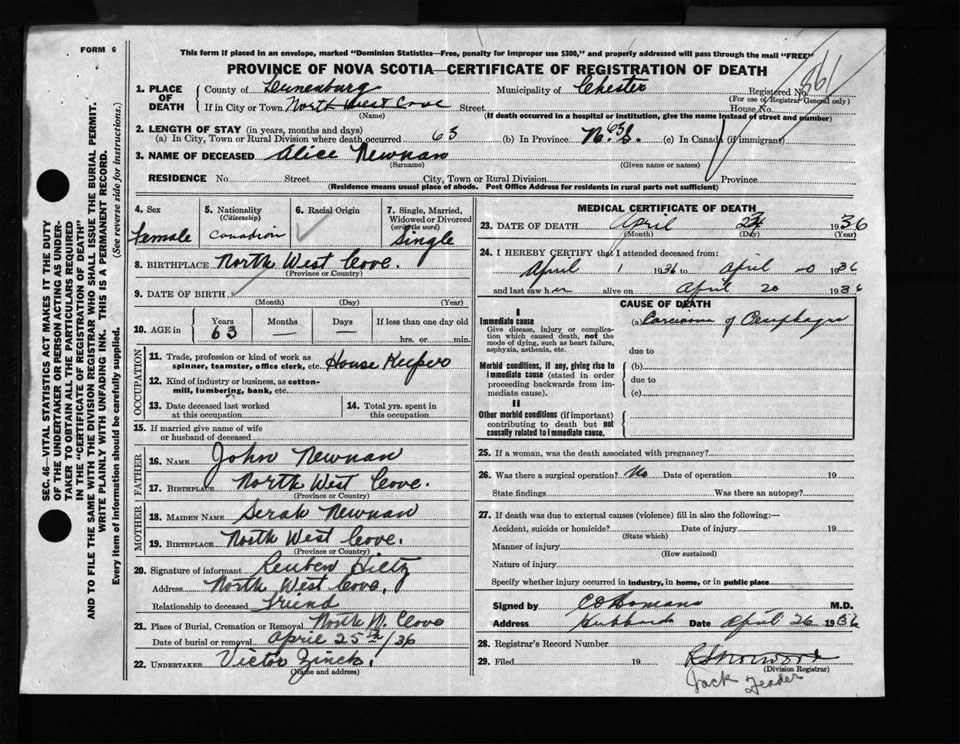 FORM 6
This form if placed in an envelope, marked "Dominion Statistics—Free, penalty for improper use $300," and properly addressed will pass through the mail "FREE"
PROVINCE OF NOVA SCOTIA—CERTIFICATE OF REGISTRATION OF DEATH
1. PLACE OF DEATH
County of Lunenburg Municipality of Chester Registered No.
(For use of Registrar General only)
If in City or Town North West Cove Street House No.
(Name) (If death occurred in a hospital or institution, give the name instead of street and number)
2. LENGTH OF STAY (in years, months and days)
(a) In City, Town or Rural Division where death occurred 63 (b) In Province N.S. 63 (c) In Canada (if immigrant)
3. NAME OF DECEASED Alice Newnan
(Surname) (Given name or names)
RESIDENCE No. Street City, Town or Rural Division Province
(Residence means usual place of abode. Post Office Address for residents in rural parts not sufficient)
SEC. 46—VITAL STATISTICS ACT MAKES IT THE DUTY
OF THE UNDERTAKER OR PERSON ACTING AS UNDER-
TAKER TO OBTAIN ALL THE PARTICULARS REQUIRED
IN THE "CERTIFICATE OF REGISTRATION OF DEATH"
AND TO FILE THE SAME WITH THE DIVISION REGISTRAR WHO SHALL ISSUE THE BURIAL PERMIT.
WRITE PLAINLY WITH UNFADING INK. THIS IS A PERMANENT RECORD.
Every item of information should be carefully supplied. (See reverse side for instructions.)
4. Sex
Female
5. Nationality
(Citizenship)
Canadian
6. Racial Origin
7. Single, Married,
Widowed or Divorced
(write the word)
Single
8. BIRTHPLACE North West Cove.
(Province or Country)
9. DATE OF BIRTH
(Month) (Day) (Year)
10. AGE in Years Months Days If less than one day old
63 — — hrs. or min.
OCCUPATION
11. Trade, profession or kind of work as
spinner, teamster, office clerk, etc. House Keeper
12. Kind of industry or business, as cotton-
mill, lumbering, bank, etc.
13. Date deceased last worked
at this occupation
14. Total yrs. spent in
this occupation
15. If married give name of wife
or husband of deceased
FATHER
16. NAME John Newnan
17. BIRTHPLACE North West Cove.
(Province or Country)
MOTHER
18. MAIDEN NAME Serah Newnan
19. BIRTHPLACE North West Cove.
(Province or Country)
20. Signature of informant Reuben Hiltz
Address North West Cove,
Relationship to deceased Friend
21. Place of Burial, Cremation or Removal North W. Cove
Date of burial or removal April 25th/36
22. UNDERTAKER Victor Zinck.
(Name and address)
MEDICAL CERTIFICATE OF DEATH
23. DATE OF DEATH April 1936
(Month) (Day) (Year)
24. I HEREBY CERTIFY that I attended deceased from:
April 1 1936 to April 20 1936
and last saw her alive on April 20 1936
CAUSE OF DEATH
I
Immediate cause
Give disease, injury or complica-
tion which caused death, not the
mode of dying, such as heart failure,
asphyxia, asthenia, etc.
(a) Carcinoma of
due to
Morbid conditions, if any, giving rise to
immediate cause (stated in order
proceeding backwards from im-
mediate cause).
(b)
due to
(c)
II
Other morbid conditions (if important)
contributing to death but not
causally related to immediate cause.
25. If a woman, was the death associated with pregnancy?
26. Was there a surgical operation? No Date of operation 19
State findings Was there an autopsy?
27. If death was due to external causes (violence) fill in also the following:—
Accident, suicide or homicide? Date of injury 19
(State which)
Manner of injury
(How sustained)
Nature of injury
Specify whether injury occurred in industry, in home, or in public place
Signed by M.D.
Address Hubbards Date April 26 1936
28. Registrar's Record Number
29. Filed 19
(Division Registrar)
Jack